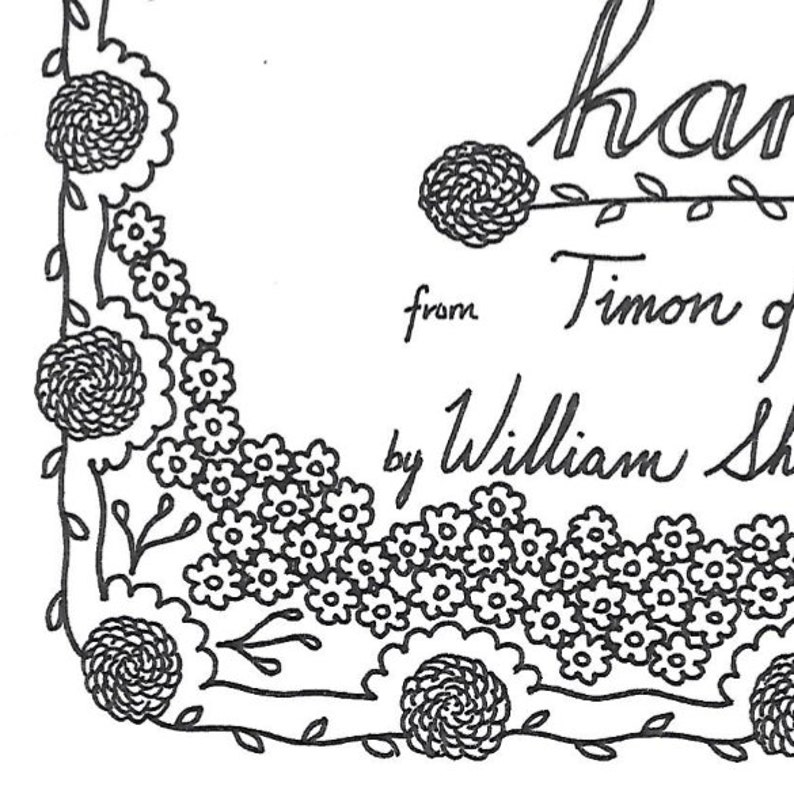 har
from Timon of
by William Sh